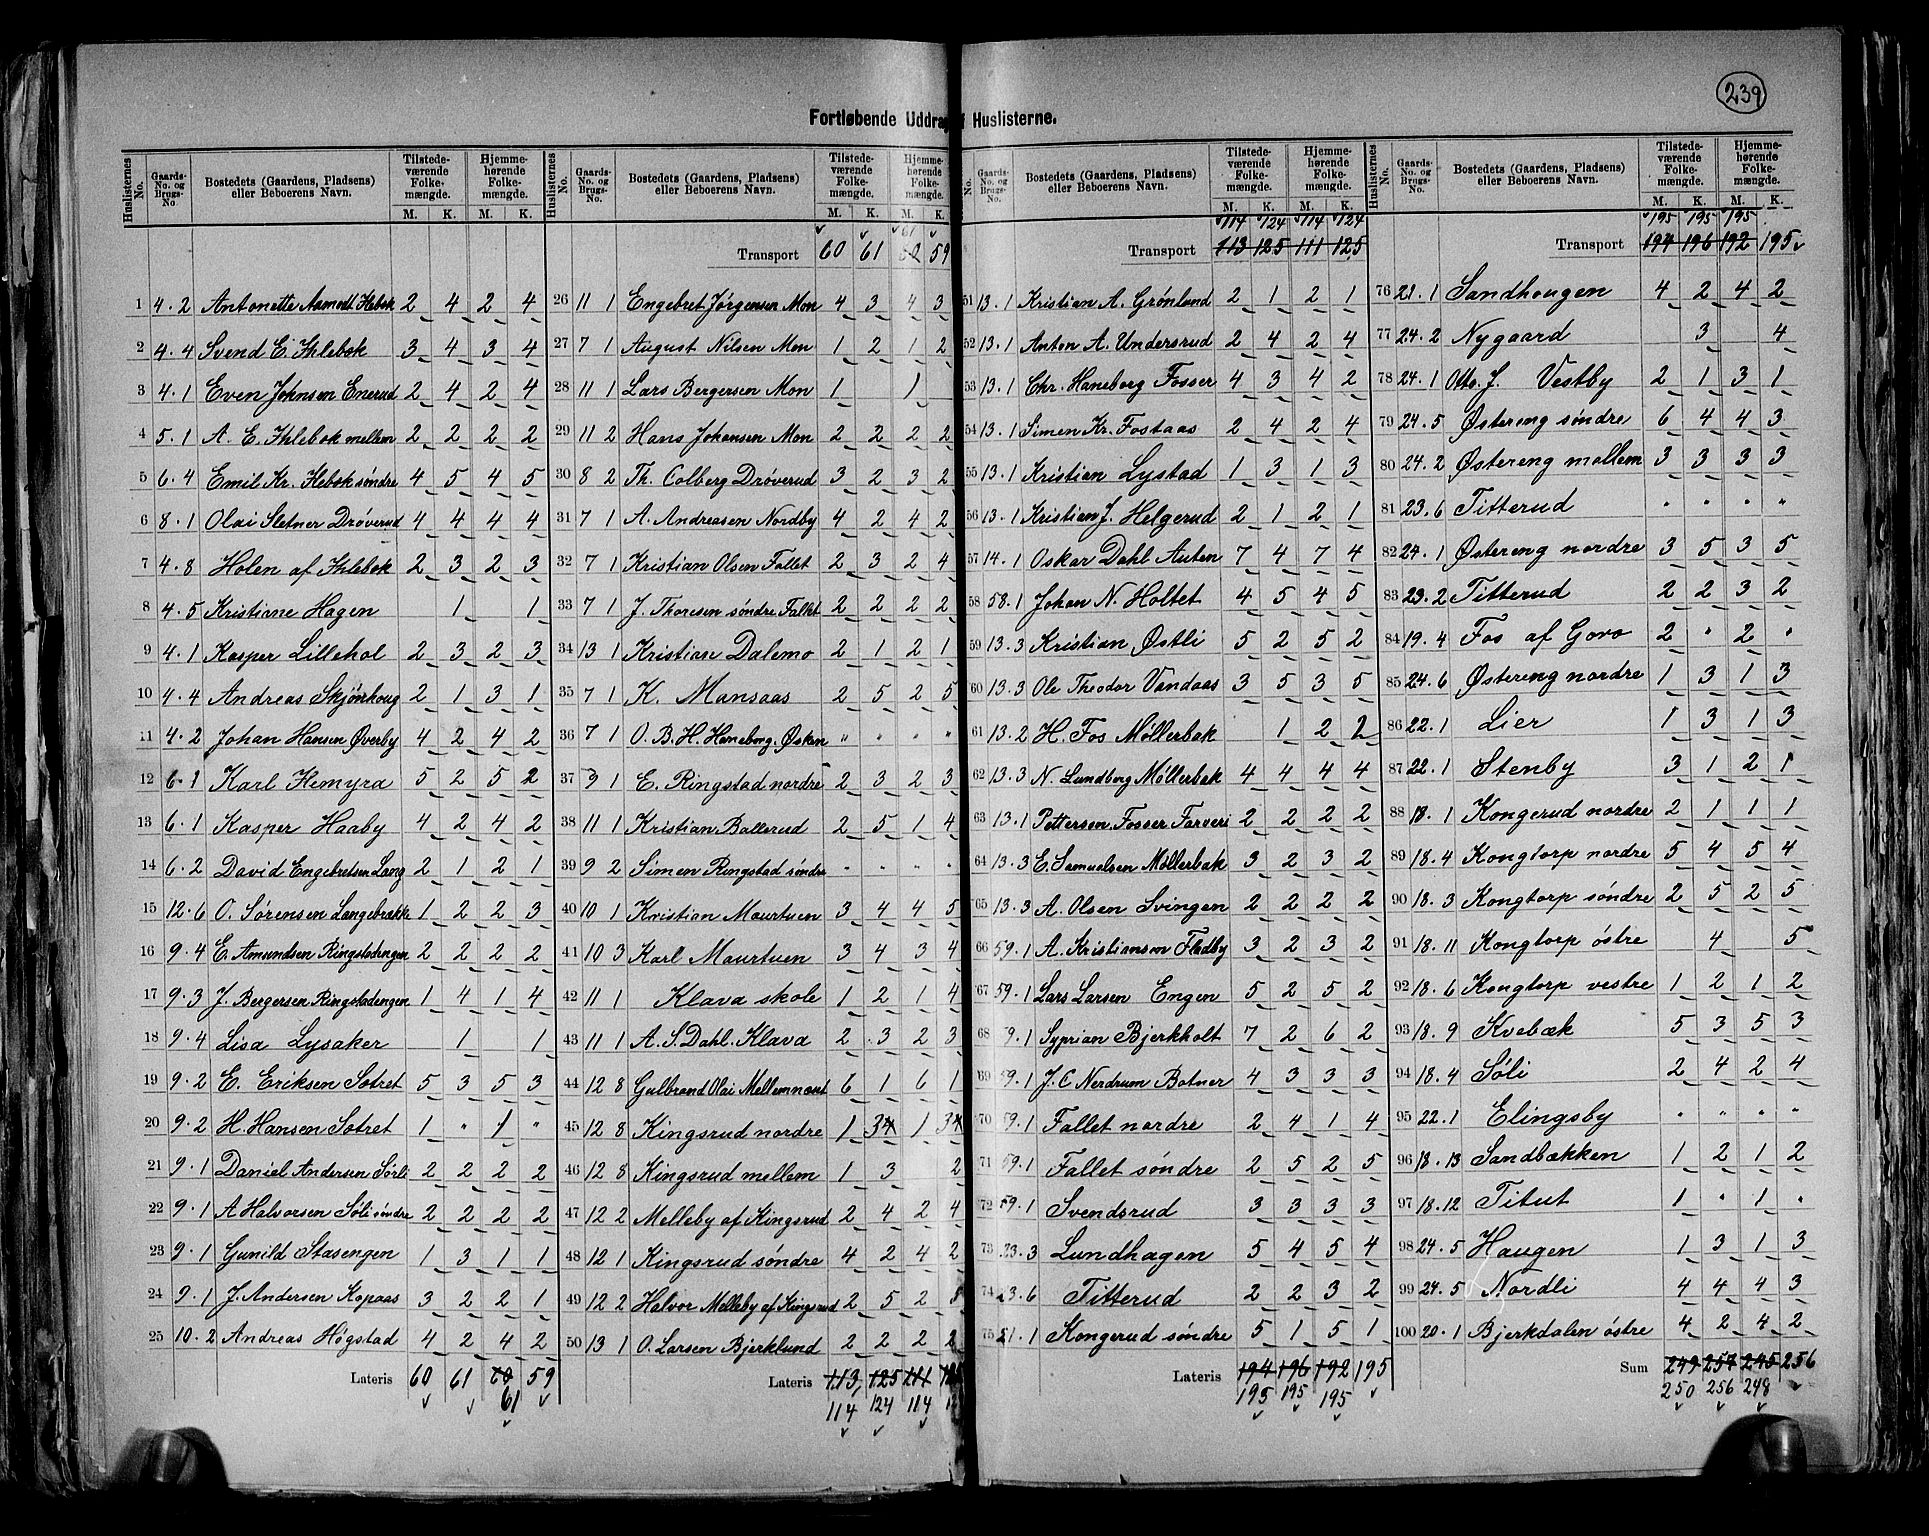 239
Fortløbende Uddrag af Huslisterne.
Huslisternes No. Gaards-No. og Brugs-No. Bostedets (Gaardens, Pladsens) eller Beboerens Navn. Tilstedeværende Folkemængde. M. K. Hjemmehørende Folkemængde. M. K.
1 4.2 Antonette Aamodt Hebok 2 4 2 4
2 4.4 Svend E. Ihlebok 3 4 3 4
3 4.1 Even Johnsen Enerud 2 4 2 4
4 5.1 A. E. Ihlebok mellem 2 2 2 2
5 6.4 Emil Kr. Hebok søndre 4 5 4 5
6 8.1 Olai Sletner Drøverud 4 4 4 4
7 4.8 Holen af Ihlebok 2 3 2 3
8 4.5 Kristiane Hagen 1 1
9 4.1 Kasper Lillehol 2 3 2 3
10 4.4 Andreas Skjønhoug 2 1 3 1
11 4.2 Johan Hansen Øverby 4 2 4 2
12 6.1 Karl Hemyra 5 2 5 2
13 6.1 Kasper Haaby 4 2 4 2
14 6.2 David Engebretsen Lang 2 1 2 1
15 12.6 O. Sørensen Langebrække 1 2 2 3
16 9.4 E. Amundsen Ringstadengen 2 2 2 2
17 9.3 J. Bergersen Ringstadengen 1 4 1 4
18 9.4 Lisa Lysaker 1 1
19 9.2 E. Eriksen Sotret 5 3 5 3
20 9.2 H. Hansen Sotret 1 " 1 "
21 9.1 Daniel Andersen Sørli 2 2 2 2
22 9.1 A Halvorsen Søli søndre 2 2 2 2
23 9.1 Gunild Stasengen 1 3 1 1
24 9.1 J. Andersen Kopaas 3 2 2 1
25 10.2 Andreas Høgstad 4 2 4 2
Lateris 60 61 60 59
61
Huslisternes No. Gaards-No. og Brugs-No. Bostedets (Gaardens, Pladsens) eller Beboerens Navn. Tilstedeværende Folkemængde. M. K. Hjemmehørende Folkemængde. M. K.
61
Transport 60 61 60 59
26 11 1 Engebret Jørgensen Mon 4 3 4 3
27 7 1 August Nilsen Mon 1 2 1 2
28 11 1 Lars Bergersen Mon 1 1
29 11 2 Hans Johansen Mon 2 2 2 2
30 8 2 Th. Colberg Drøverud 3 2 3 2
31 7 1 A. Andreasen Nordby 4 2 4 2
32 7 1 Kristian Olsen Fallet 2 3 2 4
33 7 1 J. Thoresen søndre Fallet 2 2 2 2
34 13 1 Kristian Dalemo 2 1 2 1
35 7 1 K. Mansaas 2 5 2 5
36 7 1 O. B. H. Haneborg, Østen " " " "
37 9 1 E. Ringstad nordre 2 3 2 3
38 11 1 Kristian Ballerud 2 5 1 4
39 9 2 Simen Ringstad søndre " " " "
40 10 1 Kristian Maurtuen 3 4 4 5
41 10 3 Karl Maurtuen 3 4 3 4
42 11 1 Klava skole 1 2 1 4
43 11 1 A. S. Dahl. Klava 2 3 2 3
44 12 8 Gulbrand Olai Mellemnæst 6 1 6 1
45 12 8 Kingsrud nordre 1 34 1 34
46 12 8 Kingsrud mellem 1 3 2
47 12 2 Melleby af Kingsrud 2 4 2 4
48 12 1 Kingsrud søndre 4 2 4 2
49 12 2 Halvor Melleby af Kingsrud 2 5 2
50 13 1 O. Larsen Bjerklund 2 2 2 2
Lateris 113 125 111
114 124 114
No. Gaards-No. og Brugs-No. Bostedets (Gaardens, Pladsens) eller Beboerens Navn. Tilstedeværende Folkemængde. M. K. Hjemmehørende Folkemængde. M. K.
114 124 114 124
Transport 113 125 111 125
51 13.1 Kristian A. Grønlund 2 1 2 1
52 13.1 Anton A. Undersrud 2 4 2 4
53 13.1 Chr. Haneborg Fosser 4 3 4 2
54 13.1 Simen Kr. Fostaas 2 4 2 4
55 13.1 Kristian Lystad 1 3 1 3
56 13.1 Kristian J. Helgerud 2 1 2 1
57 14.1 Oskar Dahl Auten 7 4 7 4
58 58.1 Johan N. Holtet 4 5 4 5
59 13.3 Kristian Østli 5 2 5 2
60 13.3 Ole Theodor Vandaas 3 5 3 5
61 13.2 H. Fos Møllerbak 1 2 2
62 13.3 N. Lundborg Møllerbak 4 4 4 4
63 13.1 Pettersen, Fosser Farveri 2 2 2 2
64 13.3 E. Samuelsen Møllerbak 3 2 3 2
65 13.3 A. Olsen Svingen 2 2 2 2
66 59.1 A. Kristiansen Fladby 3 2 3 2
67 59.1 Lars Larsen Engen 5 2 5 2
68 59.1 Syprian Bjerkholt 7 2 6 2
69 59.1 J. C Nerdrum Botner 4 3 3 3
70 59.1 Fallet nordre 2 4 1 4
71 59.1 Fallet søndre 2 5 2 5
72 59.1 Svendsrud 3 3 3 3
73 23.3 Lundhagen 5 4 5 4
74 23.6 Titterud 2 2 3 2
75 21.1 Kongerud søndre 5 1 5 1
Lateris 194 196 192 195
195 195 195
Huslisternes No. Gaards-No. og Brugs-No. Bostedets (Gaardens, Pladsens) eller Beboerens Navn. Tilstedeværende Folkemængde. M. K. Hjemmehørende Folkemængde. M. K.
195 195 195
Transport 194 196 192 195
76 21.1 Sandhougen 4 2 4 2
77 24.2 Nygaard 3 4
78 24.1 Otto. J. Vestby 2 1 3 1
79 24.5 Østereng søndre 6 4 4 3
80 24.2 Østereng mellem 3 3 3 3
81 23.6 Titterud " " " "
82 24.1 Østereng nordre 3 5 3 5
83 23.2 Titterud 2 2 3 2
84 19.4 Fos af Goro 2 " 2 "
85 24.6 Østereng nordre 1 3 1 3
86 22.1 Lier 1 3 1 3
87 22.1 Stenby 3 1 2 1
88 18.1 Kongerud nordre 2 1 1 1
89 18.4 Kongtorp nordre 5 4 5 4
90 18.3 Kongtorp søndre 2 5 2 5
91 18.11 Kongtorp østre 4 5
92 18.6 Kongtorp vestre 1 2 1 2
93 18.9 Kvebæk 5 3 5 3
94 18.4 Søli 2 4 2 4
95 22.1 Elingsby " " " "
96 18.13 Sandbækken 1 2 1 2
97 18.12 Titut 1 " 1 "
98 24.5 Haugen 1 3 1 3
99 24.5 Nordli 4 4 4 3
100 20.1 Bjerkdalen østre 4 2 4 2
Sum 249 257 245 256
250 256 248